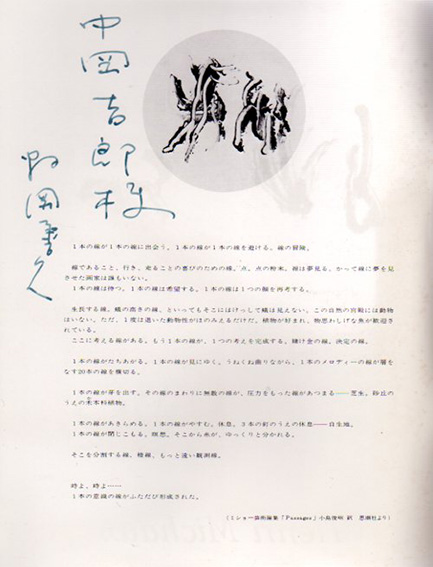 中岡吉郎様
１本の線が１本の線に出会う。１本の線が１本の線を避ける。線の冒険。
線であること、行き、走ることの喜びのための線。点。点の粉末。線は夢見る。かつて線に夢を見
させた画家は誰もいない。
１本の線は待つ。１本の線は希望する。１本の線は１つの顔を再考する。
生長する線。蟻の高さの線、といってもそこにはけっして蟻は見えない。この自然の宮殿には動物
はいない。ただ、１度は退いた動物性がほのみえるだけだ。植物が好まれ、物思わしげな魚が歓迎さ
れている。
ここに考える線がある。もう１本の線が、１つの考えを完成する。賭け金の線。決定の線。
１本の線がたちあがる。１本の線が見にゆく。うねくね曲りながら、１本のメロディーの線が層を
なす20本の線を横切る。
１本の線が芽を出す。その線のまわりに無数の線が。圧力をもった線があつまる――芝生。砂丘の
うえの禾本科植物。
１本の線があきらめる。１本の線がやすむ。休息。３本の釘のうえの休息――自生地。
１本の線が閉じこもる。瞑想。そこから糸が、ゆっくりと分かれる。
そこを分割する線、棟線、もっと遠い観測線。
時よ、時よ――
１本の意識の線がふたたび形成された。
（ミショー芸術論集「Passages」小島俊明 訳 思潮社より）